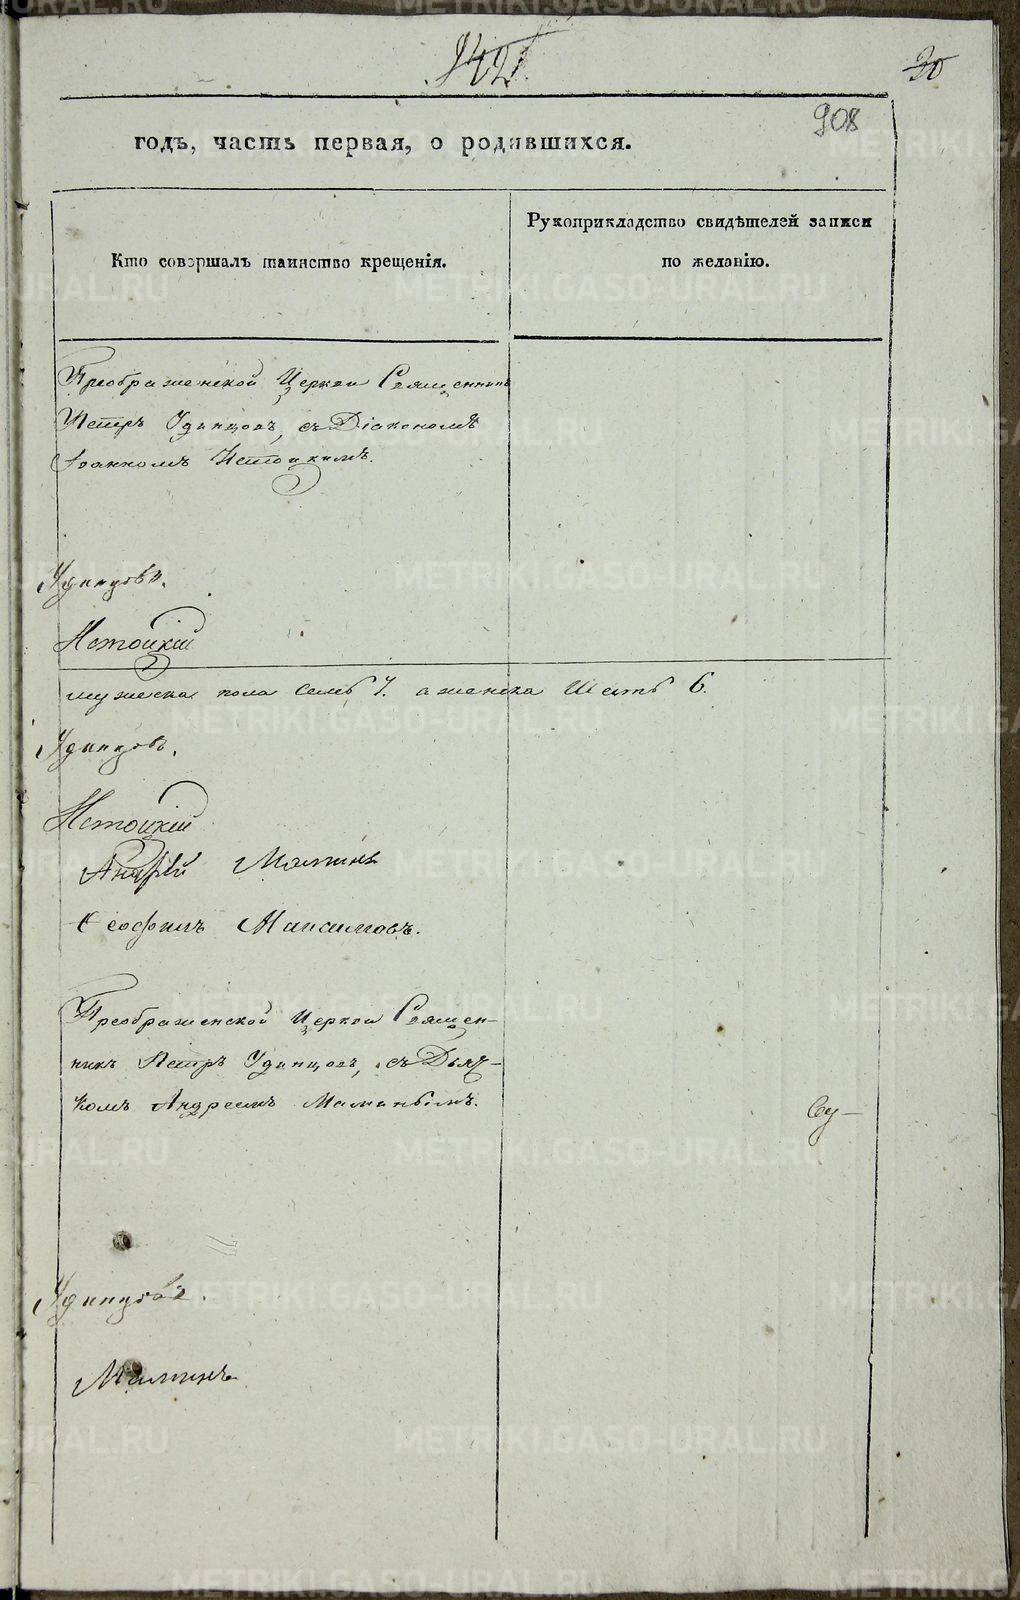 30
908
годъ, часть первая, о родившихся.
Кто совершалъ таинство крещенія.
Рукоприкладство свидѣтелей записи
по желанію.
Преображенской Церкви Священникъ
Петръ Удинцовъ, съ Діакономъ
Іоанномъ Истоцкимъ.
Удинцовъ.
Истоцкій
мужеска пола семь 7. а женска шесть 6.
Удинцовъ.
Истоцкій
Андрей Маминъ
Максимовъ.
Преображенской Церкви Священ-
никъ Петръ Удинцовъ, съ Дьяч-
комъ Андреемъ Маминымъ.
Су-
Удинцовъ.
Маминъ
METRIKI.GASO-URAL.RU